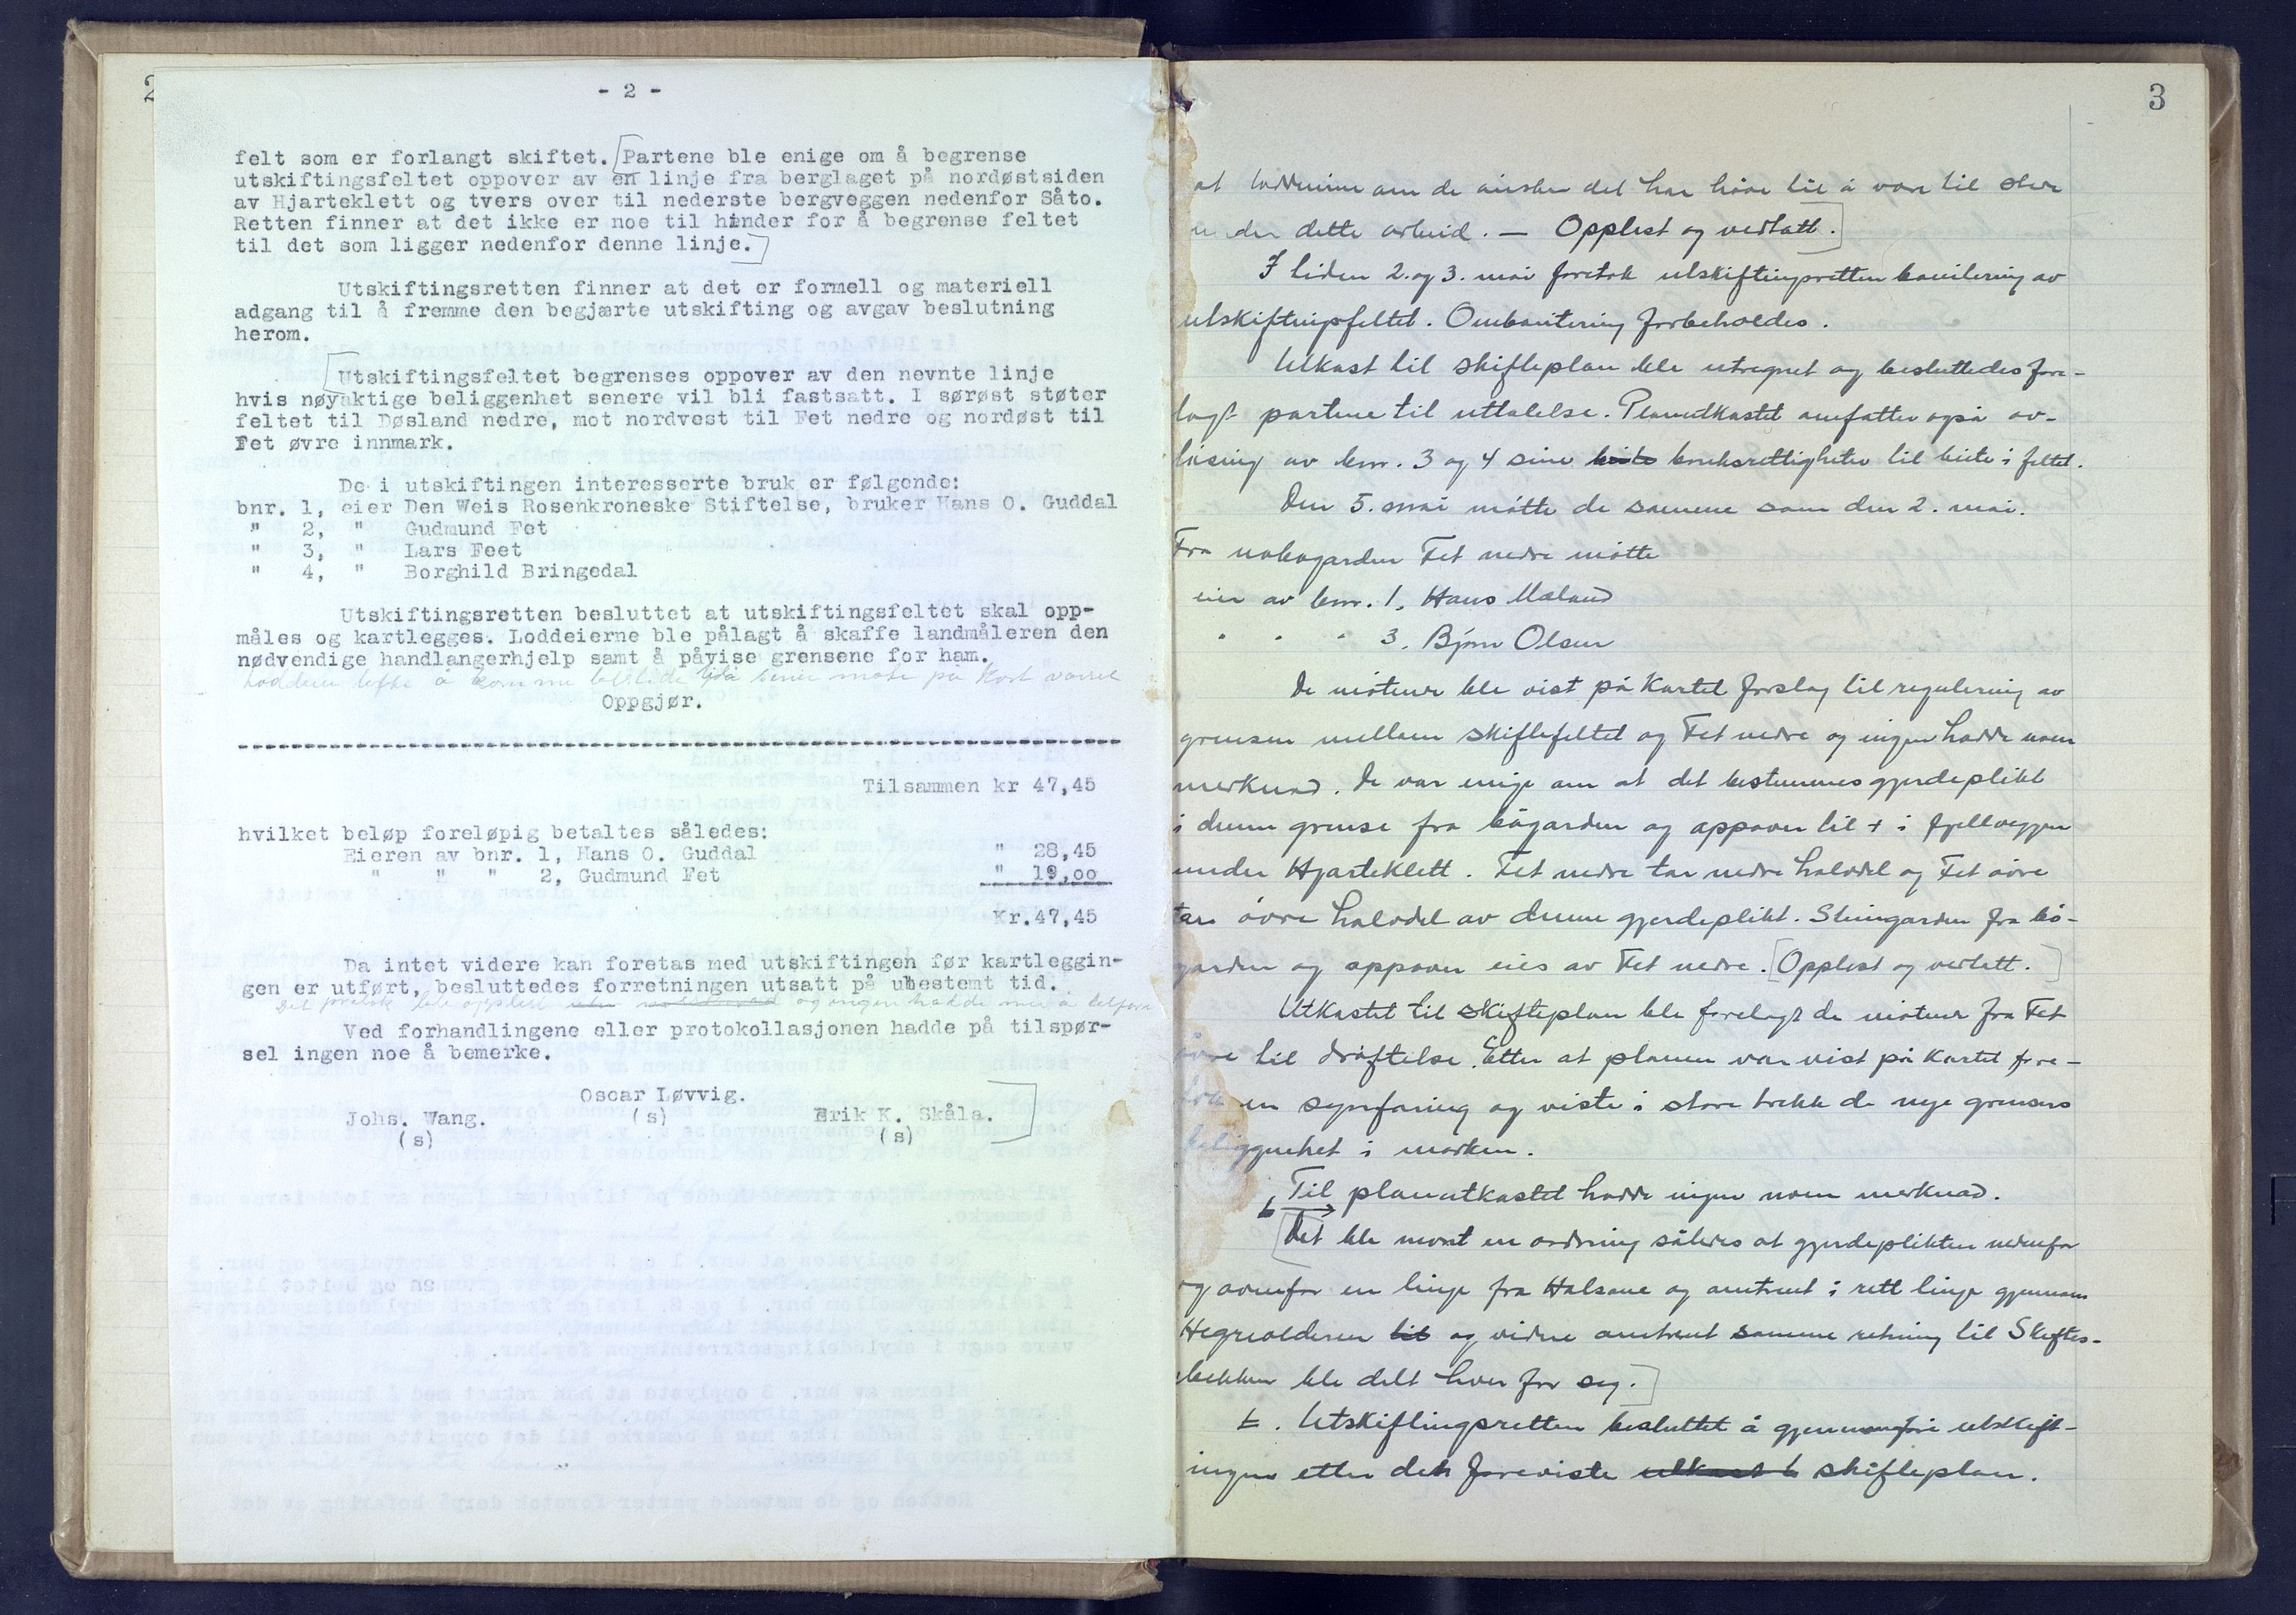 2
- 2 -
felt som er forlangt skiftet. [Partene ble enige om å begrense
utskiftingsfeltet oppover av en linje fra berglaget på nordøstsiden
av Hjarteklett og tvers over til nederste bergveggen nedenfor Såto.
Retten finner at det ikke er noe til hinder for å begrense feltet
til det som ligger nedenfor denne linje.]
Utskiftingsretten finner at det er formell og materiell
adgang til å fremme den begjærte utskifting og avgav beslutning
herom.
[Utskiftingsfeltet begrenses oppover av den nevnte linje
hvis nøyaktige beliggenhet senere vil bli fastsatt. I sørøst støter
feltet til Døsland nedre, mot nordvest til Fet nedre og nordøst til
Fet øvre innmark.
De i utskiftingen interesserte bruk er følgende:
bnr. 1, eier Den Weis Rosenkroneske Stiftelse, bruker Hans O. Guddal
" 2, " Gudmund Fet
" 3, " Lars Feet
" 4, " Borghild Bringedal
Utskiftingsretten besluttet at utskiftingsfeltet skal opp-
måles og kartlegges. Loddeierne ble pålagt å skaffe landmåleren den
nødvendige handlangerhjelp samt å påvise grensene for ham.
å komme tilstede på møte på kort varsel
Oppgjør.
Tilsammen kr 47,45
hvilket beløp foreløpig betaltes således:
Eieren av bnr. 1, Hans O. Guddal " 28,45
" " " 2, Gudmund Fet " 19,00
Kr.47,45
Da intet videre kan foretas med utskiftingen før kartleggin-
gen er utført, besluttedes forretningen utsatt på ubestemt tid.
Det ble opplest og ingen hadde mer å tilføre
Ved forhandlingene eller protokollasjonen hadde på tilspør-
sel ingen noe å bemerke.
Oscar Løvvig.
Johs. Wang. (s) Erik K. Skåla.]
(s) (s)
3
at loddeierne om de ønsker det har høve til å være til stede
under dette arbeid. — Opplest og vedtatt.]
I tiden 2. og 3. mai foretok utskiftingsretten bonitering av
utskiftingsfeltet. Ombonitering forbeholdes.
Utkast til skifteplan ble utregnet og besluttedes fore-
lagt partene til uttalelse. Planutkastet omfatter også av-
løsing av bnr. 3 og 4 sine beite bruksrettigheter til beite i feltet.
Den 5. mai møtte de samme som den 2. mai.
Fra nabogarden Fet nedre møtte
eier av bnr. 1, Hans Mæland
" " " 3. Bjørn Olsen
De møtende ble vist på kartet forslag til regulering av
grensen mellom skiftefeltet og Fet nedre og ingen hadde noen
merknad. De var enige om at det bestemmes gjerdeplikt
i denne grense fra bøgarden og oppover til + i fjellveggen
under Hjarteklett. Fet nedre tar nedre halvdel og Fet øvre
tar øvre halvdel av denne gjerdeplikt. Steingarden fra bø-
garden og oppover eies av Fet nedre. [Opplest og vedtatt.]
Utkastet til skifteplan ble forelagt de møtende fra Fet
øvre til drøftelse. Etter at planen var vist på kartet fore-
tok en synfaring og viste i store trekk de nye grensers
beliggenhet i marken.
Til planutkastet hadde ingen noen merknad.
[Det ble nevnt en ordning således at gjerdeplikten nedenfor
og ovenfor en linje fra Halsane og omtrent i rett linje gjennom
til og videre omtrent samme retning til Skiftes-
bekken ble delt hver for seg.]
Utskiftingsretten besluttet å gjennomføre utskift-
ingen etter den foreviste utkast t skifteplan.